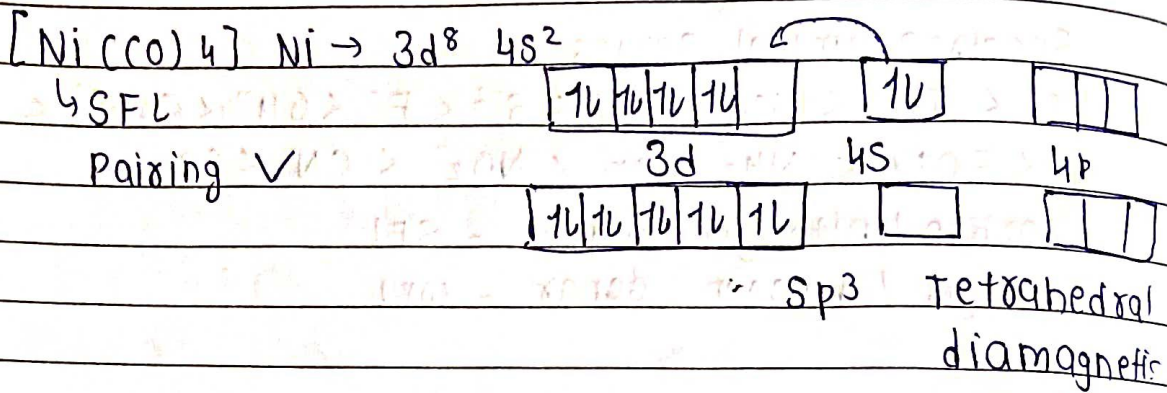 [Ni (CO) 4] Ni → 3d⁸ 4s²
↳ SFL 1l 1l 1l 1l 1l
Pairing ✓ 3d 4s 4p
1l 1l 1l 1l 1l
Sp3 Tetrahedral
diamagnetic